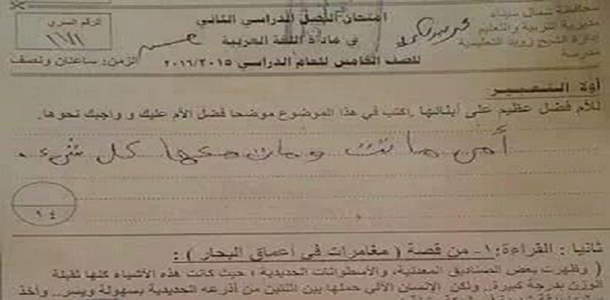 محافظة شمال سيناء
مديرية التربية والتعليم
إدارة الشيخ زويد التعليمية
مدرسة
امتحان الفصل الدراسي الثاني
في مادة اللغة العربية
للصف الخامس للعام الدراسي ٢٠١٦/٢٠١٥
الرقم السري
الزمن: ساعتان ونصف
أولاً التعبير:
للأم فضل عظيم على أبنائها. اكتب في هذا الموضوع موضحا فضل الأم عليك و واجبك نحوها.
أمى ماتت ومات معها كل شىء.
١٤
ثانيا : القراءة: ١- من قصة ( مغامرات في أعماق البحار ) :
( وظهرت بعض الصناديق المعدنية، والأسطوانات الحديدية ؛ حيث كانت هذه الأشياء كلها ثقيلة
الوزن بدرجة كبيرة.. ولكن الإنسان الآلي حملها بين اثنتين من أذرعه الحديدية بسهولة ويسر.. وأخذ